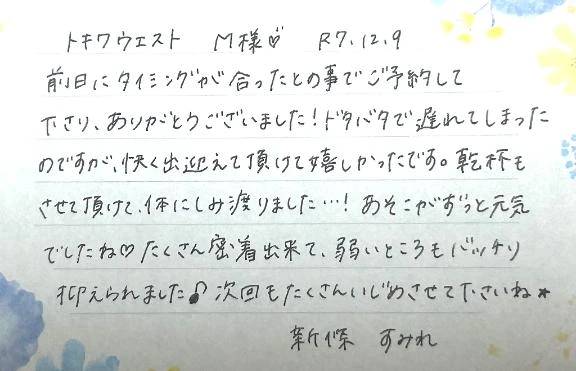 トキワウエスト　M様♡　R7.12.9
前日にタイミングが合ったとの事でご予約して
下さり、ありがとうございました！ドタバタで遅れてしまった
のですが、快く出迎えて頂けて嬉しかったです。乾杯も
させて頂けて、体にしみ渡りました…！あそこがずっと元気
でしたね♡たくさん密着出来て、弱いところもバッチリ
抑えられました♪次回もたくさんいじめさせて下さいね★
新條　すみれ